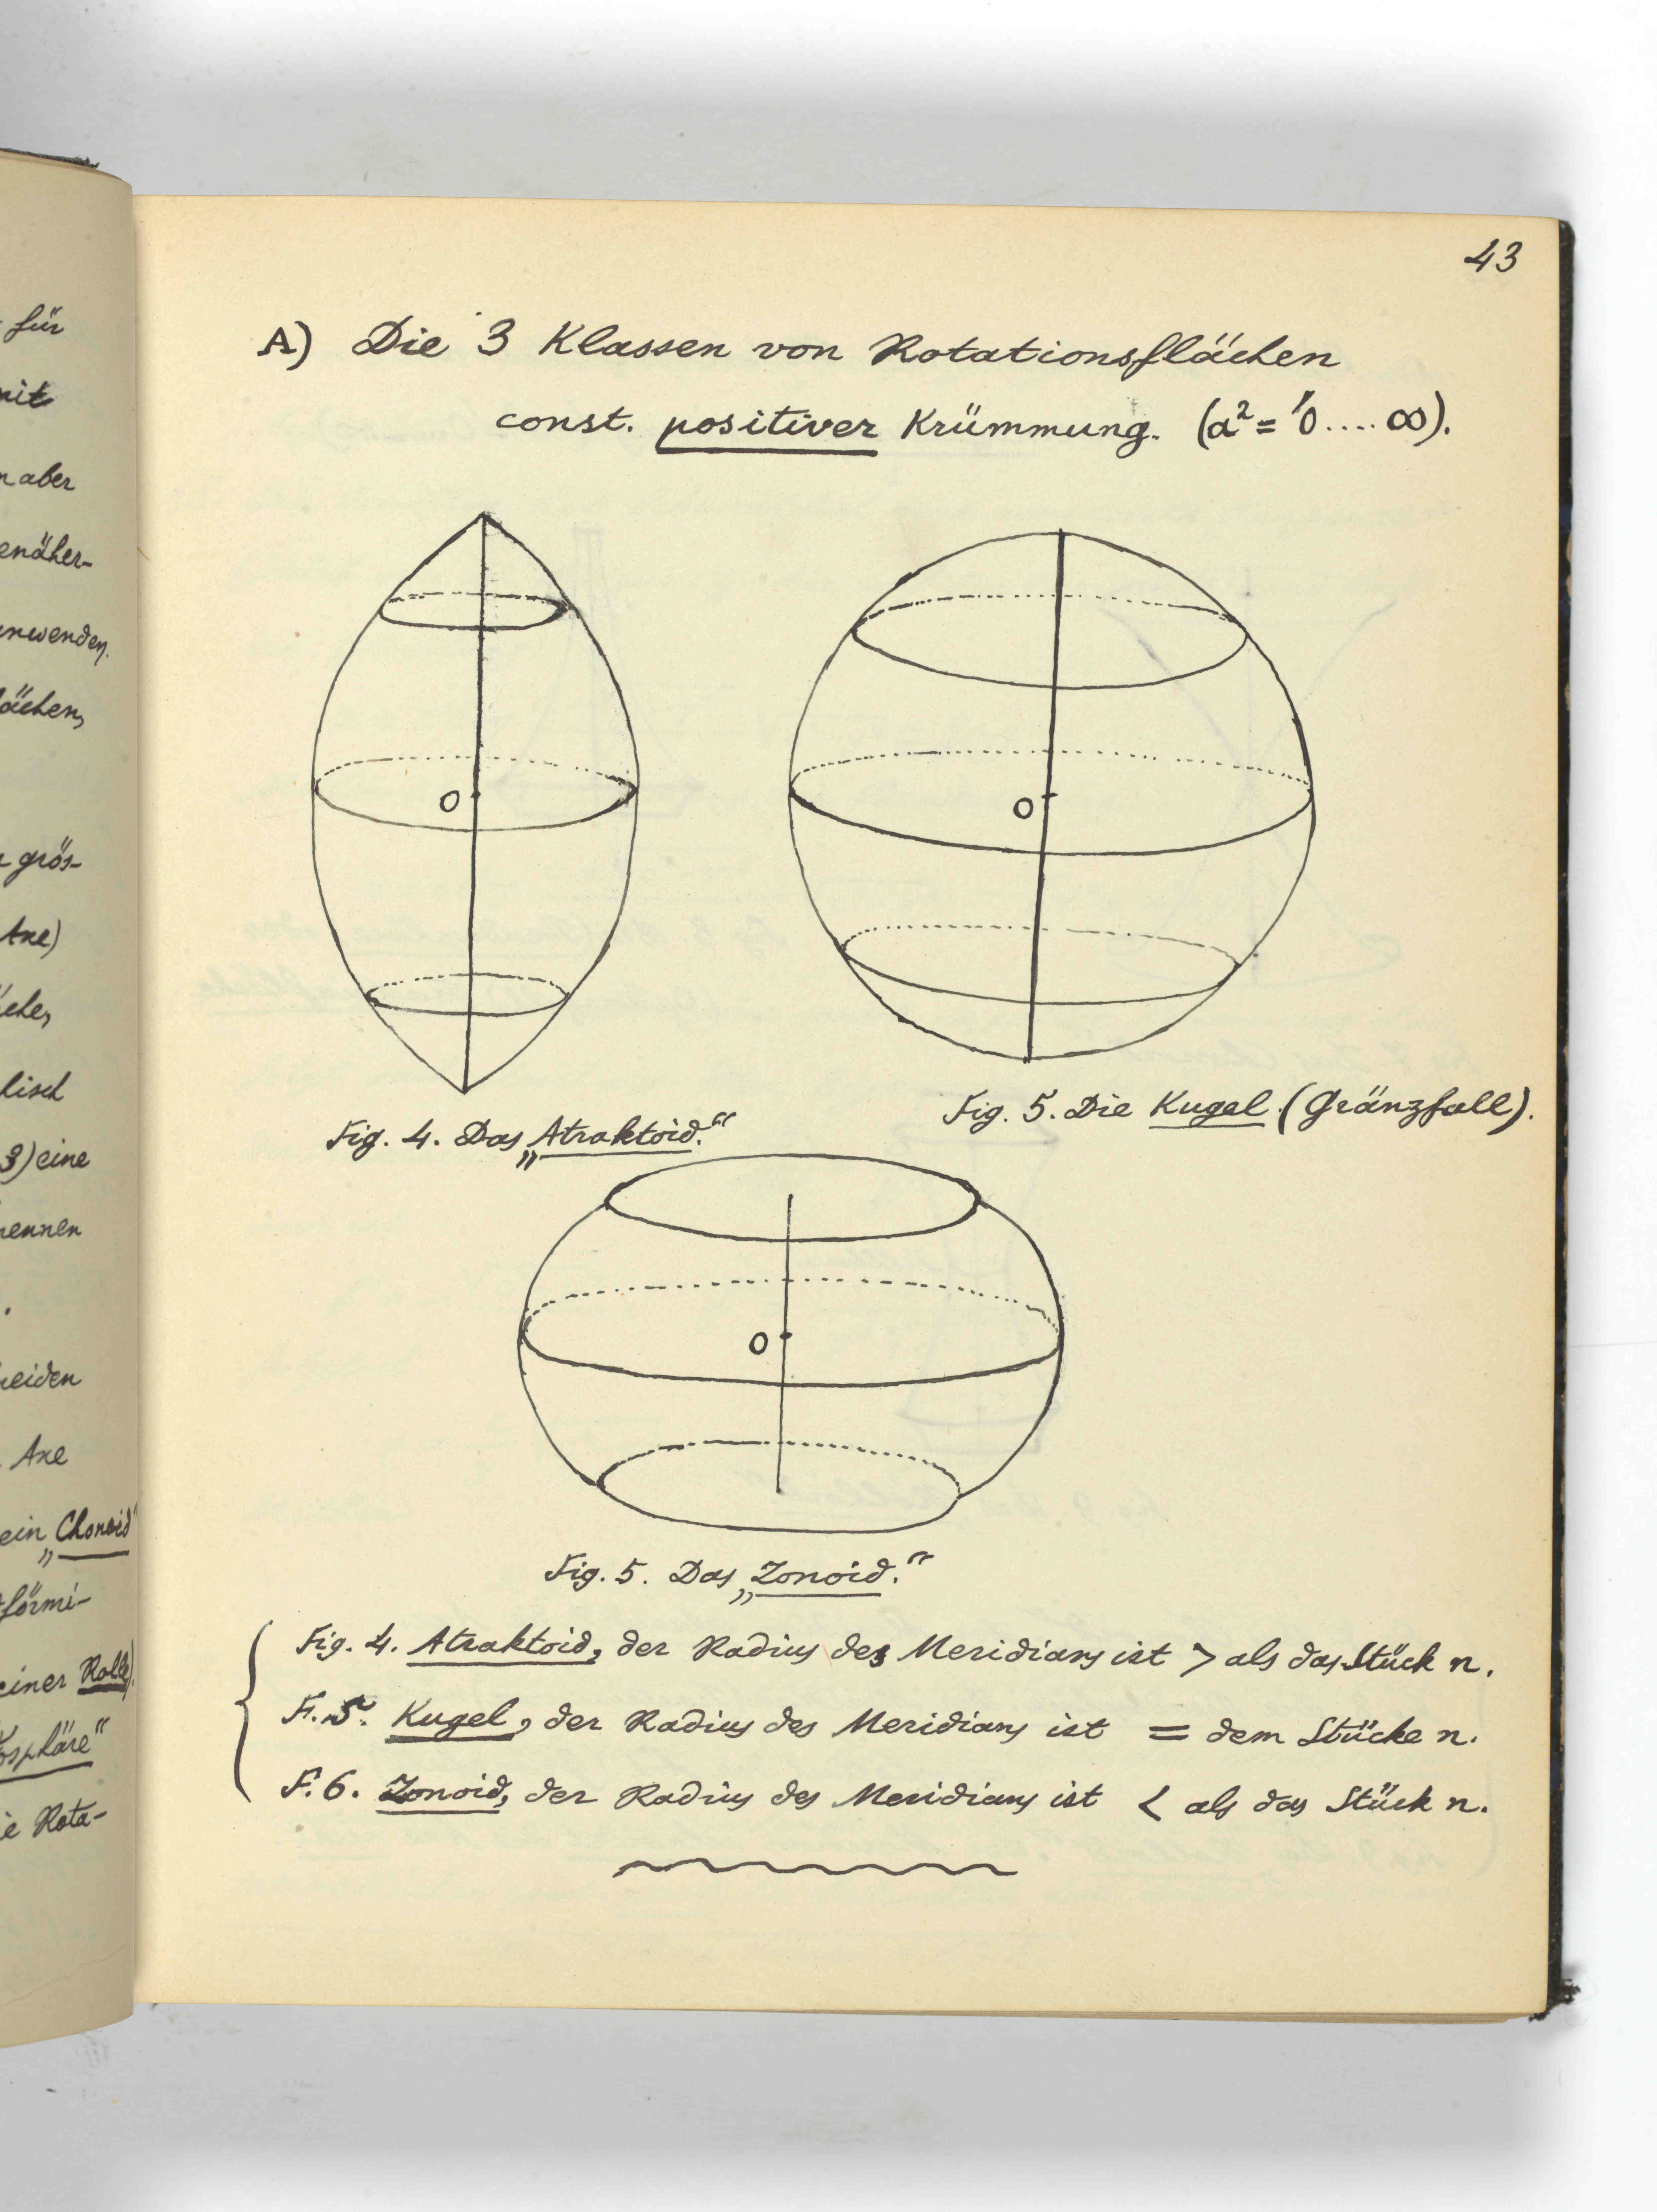 für
mit
aber
enäher-
anwenden.
ächen,
grös-
Axe)
lisch
3) eine
nennen
Axe
ein „Chonoid“
förmi-
einer Rolle)
osphäre“
ie Rota-
43
A) Die 3 Klassen von Rotationsflächen
const. positiver Krümmung. (a² = 0 .... ∞).
O
O
Fig. 4. Das „Atraktoid.“
Fig. 5. Die Kugel. (Gränzfall).
O
Fig. 5. Das „Zonoid.“
Fig. 4. Atraktoid, der Radius des Meridians ist > als das Stück n.
F. 5. Kugel, der Radius des Meridians ist = dem Stücke n.
F. 6. Zonoid, der Radius des Meridians ist < als das Stück n.